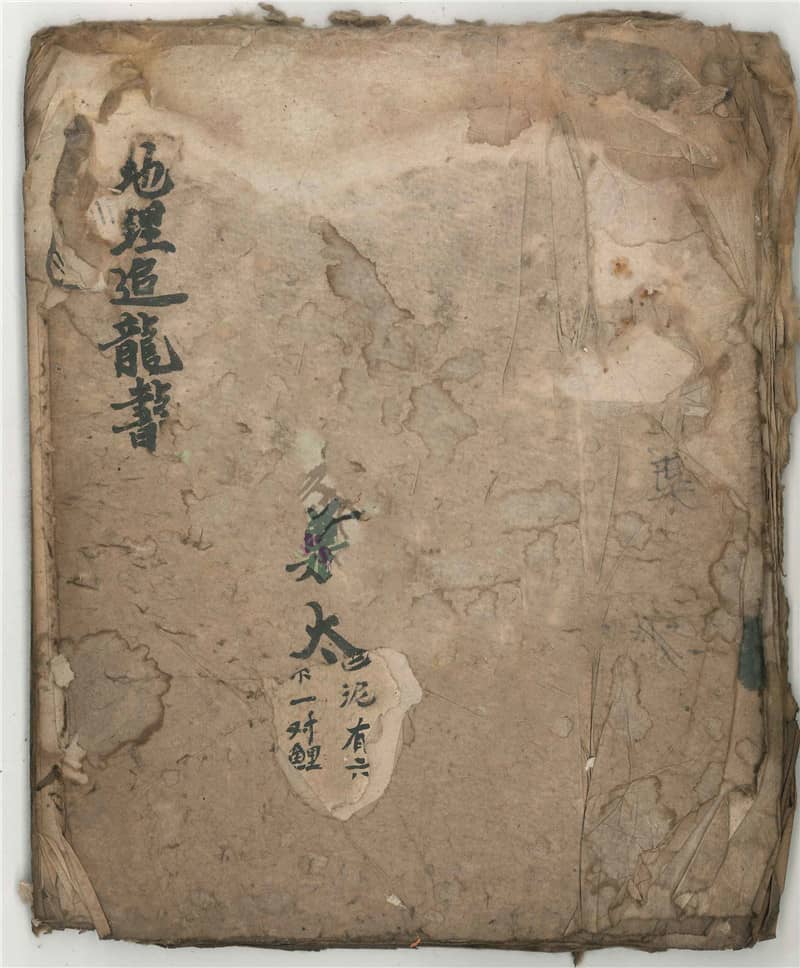 葉
地理追龍書
太
泥有六
下一对鲤